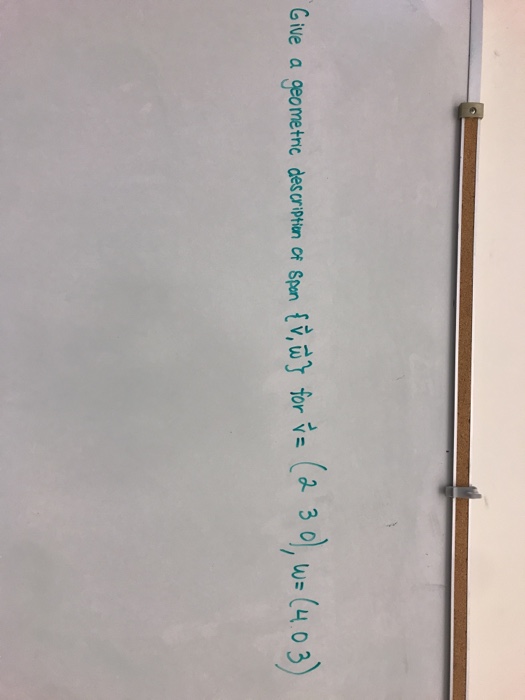 Give a geometric description of Span {v⃗, w⃗} for v⃗ = (2 3 0), w = (4 0 3)